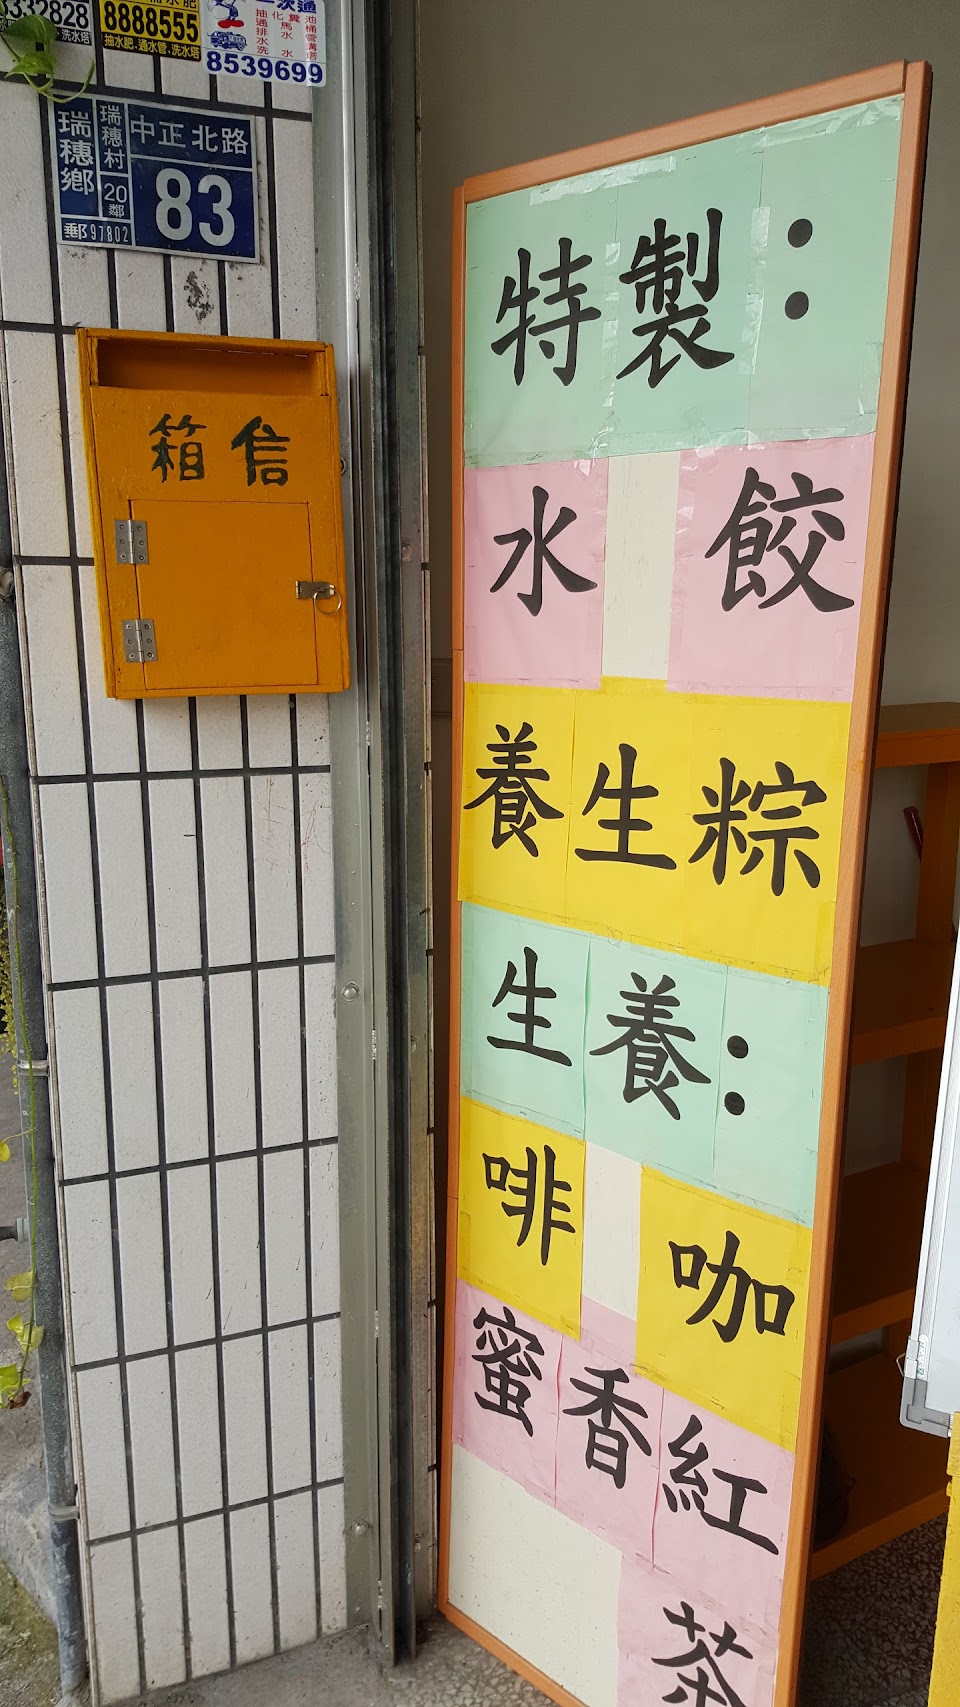 3332828
洗水塔
8888555
抽水肥.通水管.洗水塔
8539699
瑞穗鄉
瑞穗村
20鄰
中正北路
83
郵97802
箱信
特製：
水餃
養生粽
生養：
啡咖
蜜香紅
茶